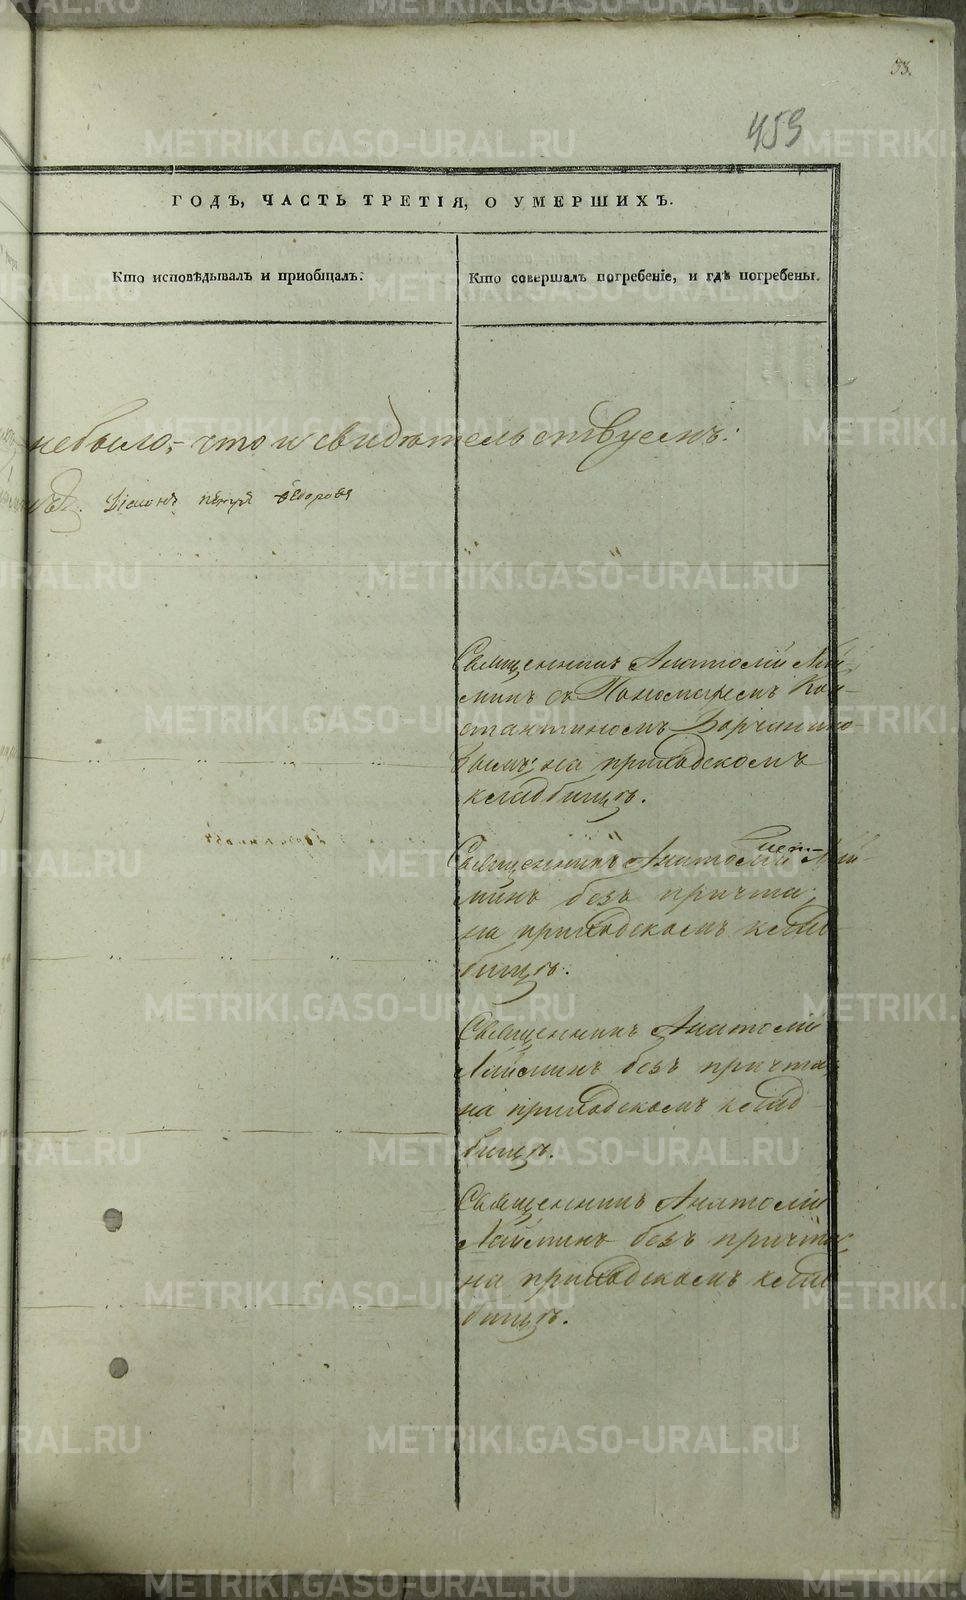 33.
459
ГОДЪ, ЧАСТЬ ТРЕТІЯ, О УМЕРШИХЪ.
Кто исповѣдывалъ и приобщалъ:
Кто совершалъ погребеніе, и гдѣ погребены.
небыло, что и свидѣтельствуемъ:
Діаконъ Ѳедоровъ
Священникъ Анатолій Лай-
минъ съ Пономаремъ Кон-
стантиномъ
вымъ; на приходскомъ
кладбищѣ.
Священникъ Анатолій Лай-
минъ безъ причта,
на приходскомъ клад-
бищѣ.
Священникъ Анатолій
Лайминъ безъ причта,
на приходскомъ клад-
бищѣ.
Священникъ Анатолій
Лайминъ безъ причта,
на приходскомъ клад-
бищѣ.
METRIKI.GASO-URAL.RU